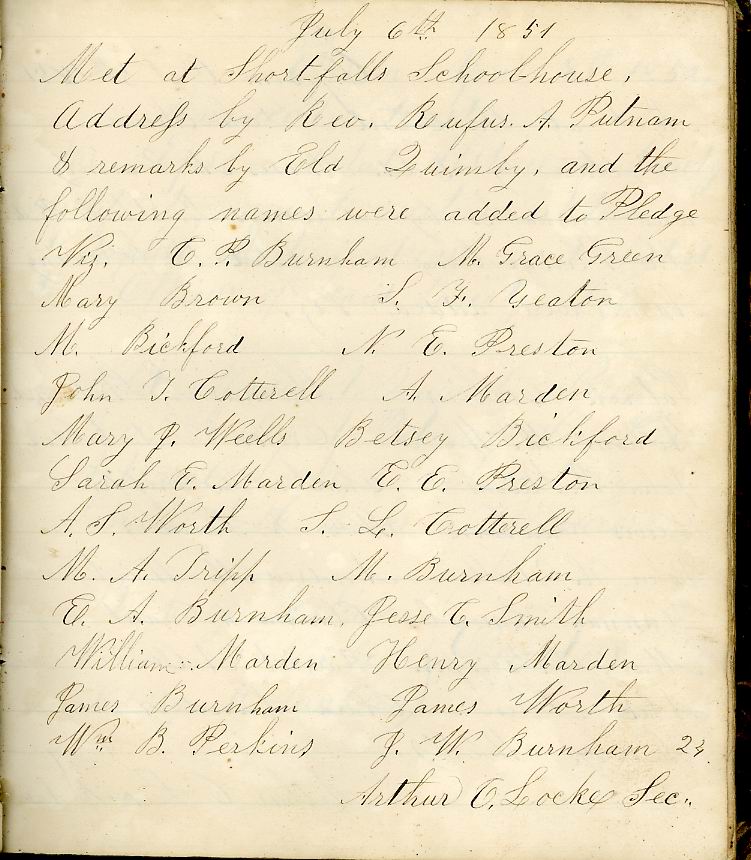 July 6th 1851
Met at Shortfalls Schoolhouse,
Addreſs by Rev. Rufus A. Putnam
& remarks by Eld Quimby, and the
following names were added to Pledge
Viz. C. P. Burnham M. Grace Green
Mary Brown S. F. Yeaton
M. Bickford N. E. Preston
John T. Cotterell A. Marden
Mary J. Weells Betsey Bickford
Sarah E. Marden E. E. Preston
A. S. Worth S. L. Cotterell
M. A. Tripp M. Burnham
E. A. Burnham, Jesse C. Smith
William Marden Henry Marden
James Burnham James Worth
Wm B. Perkins J. W. Burnham
Arthur C. Locke Sec.